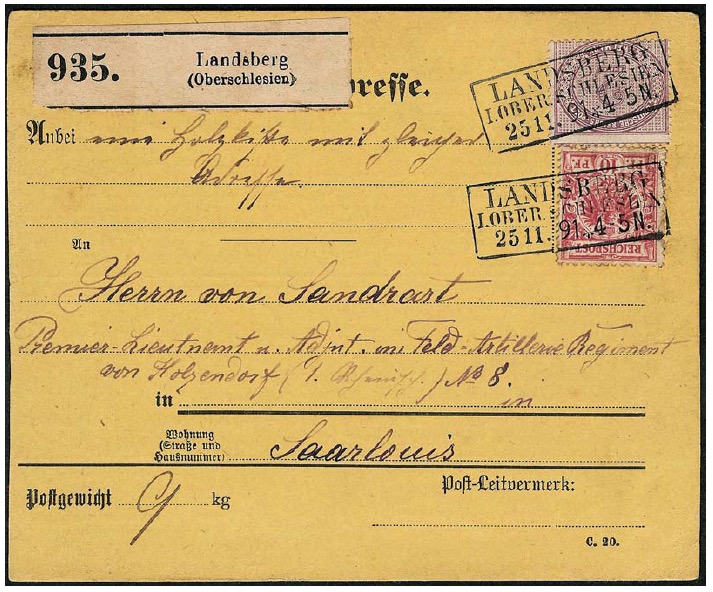 935.
Landsberg
(Oberschlesien)
resse.
LANDSBERG
I.OBER.SCHLESIEN
25 11. 91. 4-5 N.
Anbei eine Holzkiste mit gleicher
Adresse.
LANDSBERG
I.OBER.SCHLESIEN
25 11. 91. 4-5 N.
10 PF
REICHSPOST
An
Herrn von Sandrart
Premier-Lieutnant u. Adjut. im Feld-Artillerie Regiment
von Holzendorf (1. Rheinisch.) No 8.
in in
Wohnung
(Straße und
Hausnummer)
Saarlouis
Postgewicht 9 kg
Post-Leitvermerk:
C. 20.